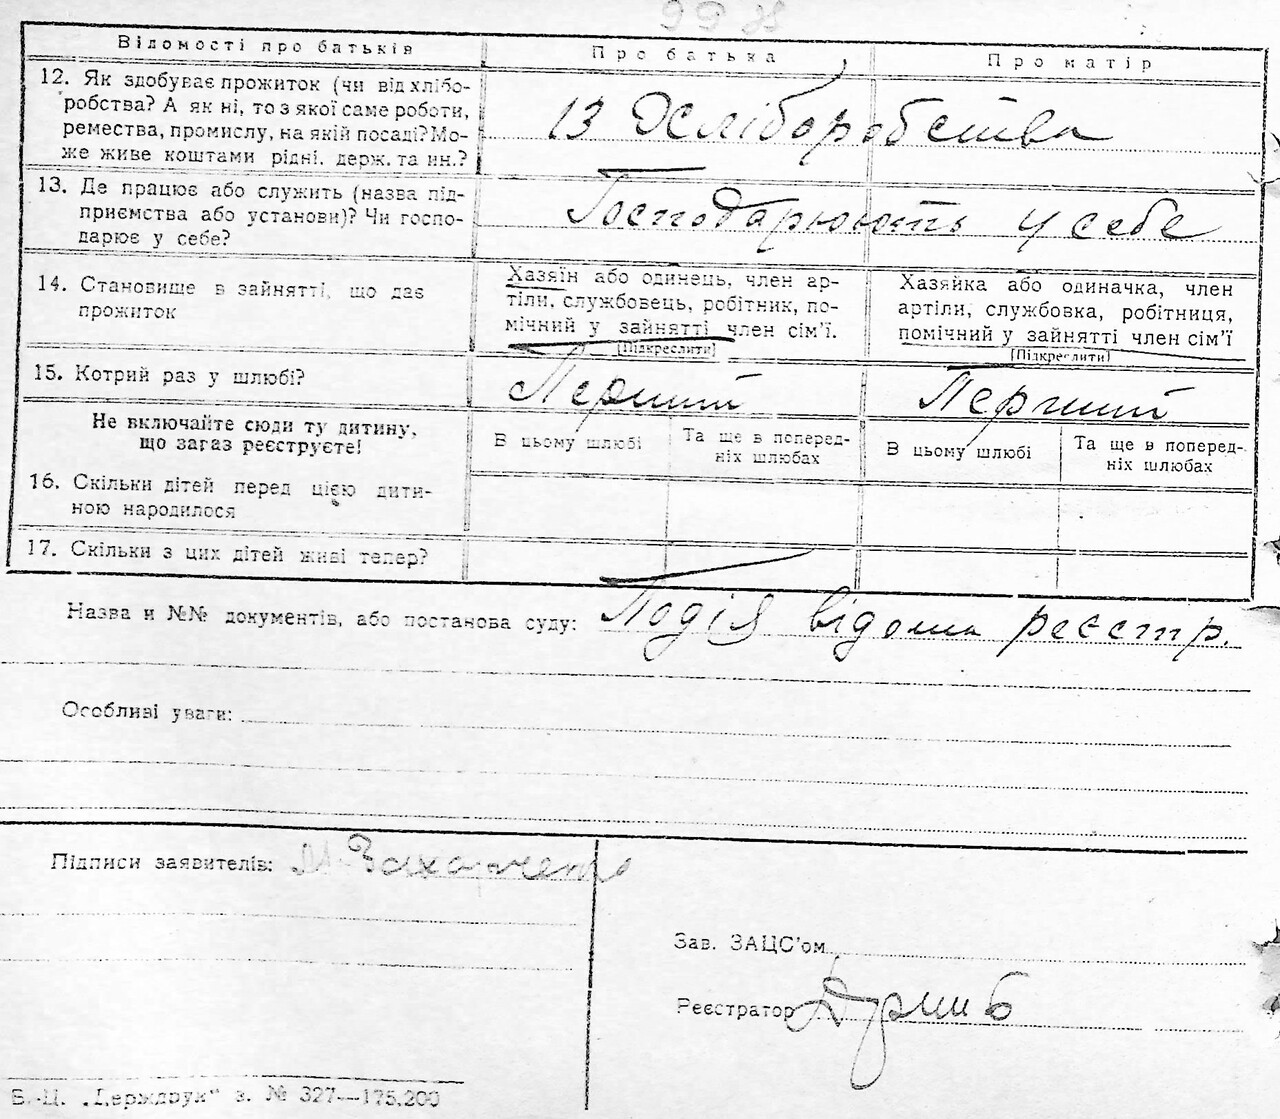 Відомості про батьків Про батька Про матір
12. Як здобуває прожиток (чи від хлібо-
робства? А як ні, то з якої саме роботи,
ремества, промислу, на якій посаді? Мо-
же живе коштами рідні, держ. та ин.?
Із Хліборобства
13. Де працює або служить (назва під-
приємства або установи)? Чи госпо-
дарює у себе?
Господарюють у себе
14. Становище в зайнятті, що дає
прожиток
Хазяїн або одинець, член ар-
тіли, службовець, робітник, по-
мічний у зайнятті член сім’ї.
[Підкреслити]
Хазяйка або одиначка, член
артіли, службовка, робітниця,
помічний у зайнятті член сім’ї
[Підкреслити]
15. Котрий раз у шлюбі? Перший Перший
Не включайте сюди ту дитину,
що зараз реєструєте!
В цьому шлюбі
Та ще в поперед-
ніх шлюбах
В цьому шлюбі
Та ще в поперед-
ніх шлюбах
16. Скільки дітей перед цією дити-
ною народилося
17. Скільки з цих дітей живі тепер?
Назва и №№ документів, або постанова суду: Подія відома реєстр.
Особливі уваги:
Підписи заявителів: М. Захарченко
Зав. ЗАЦС’ом
Реєстратор
Б.-Ц. „Держдрук“ з. № 327—175.200